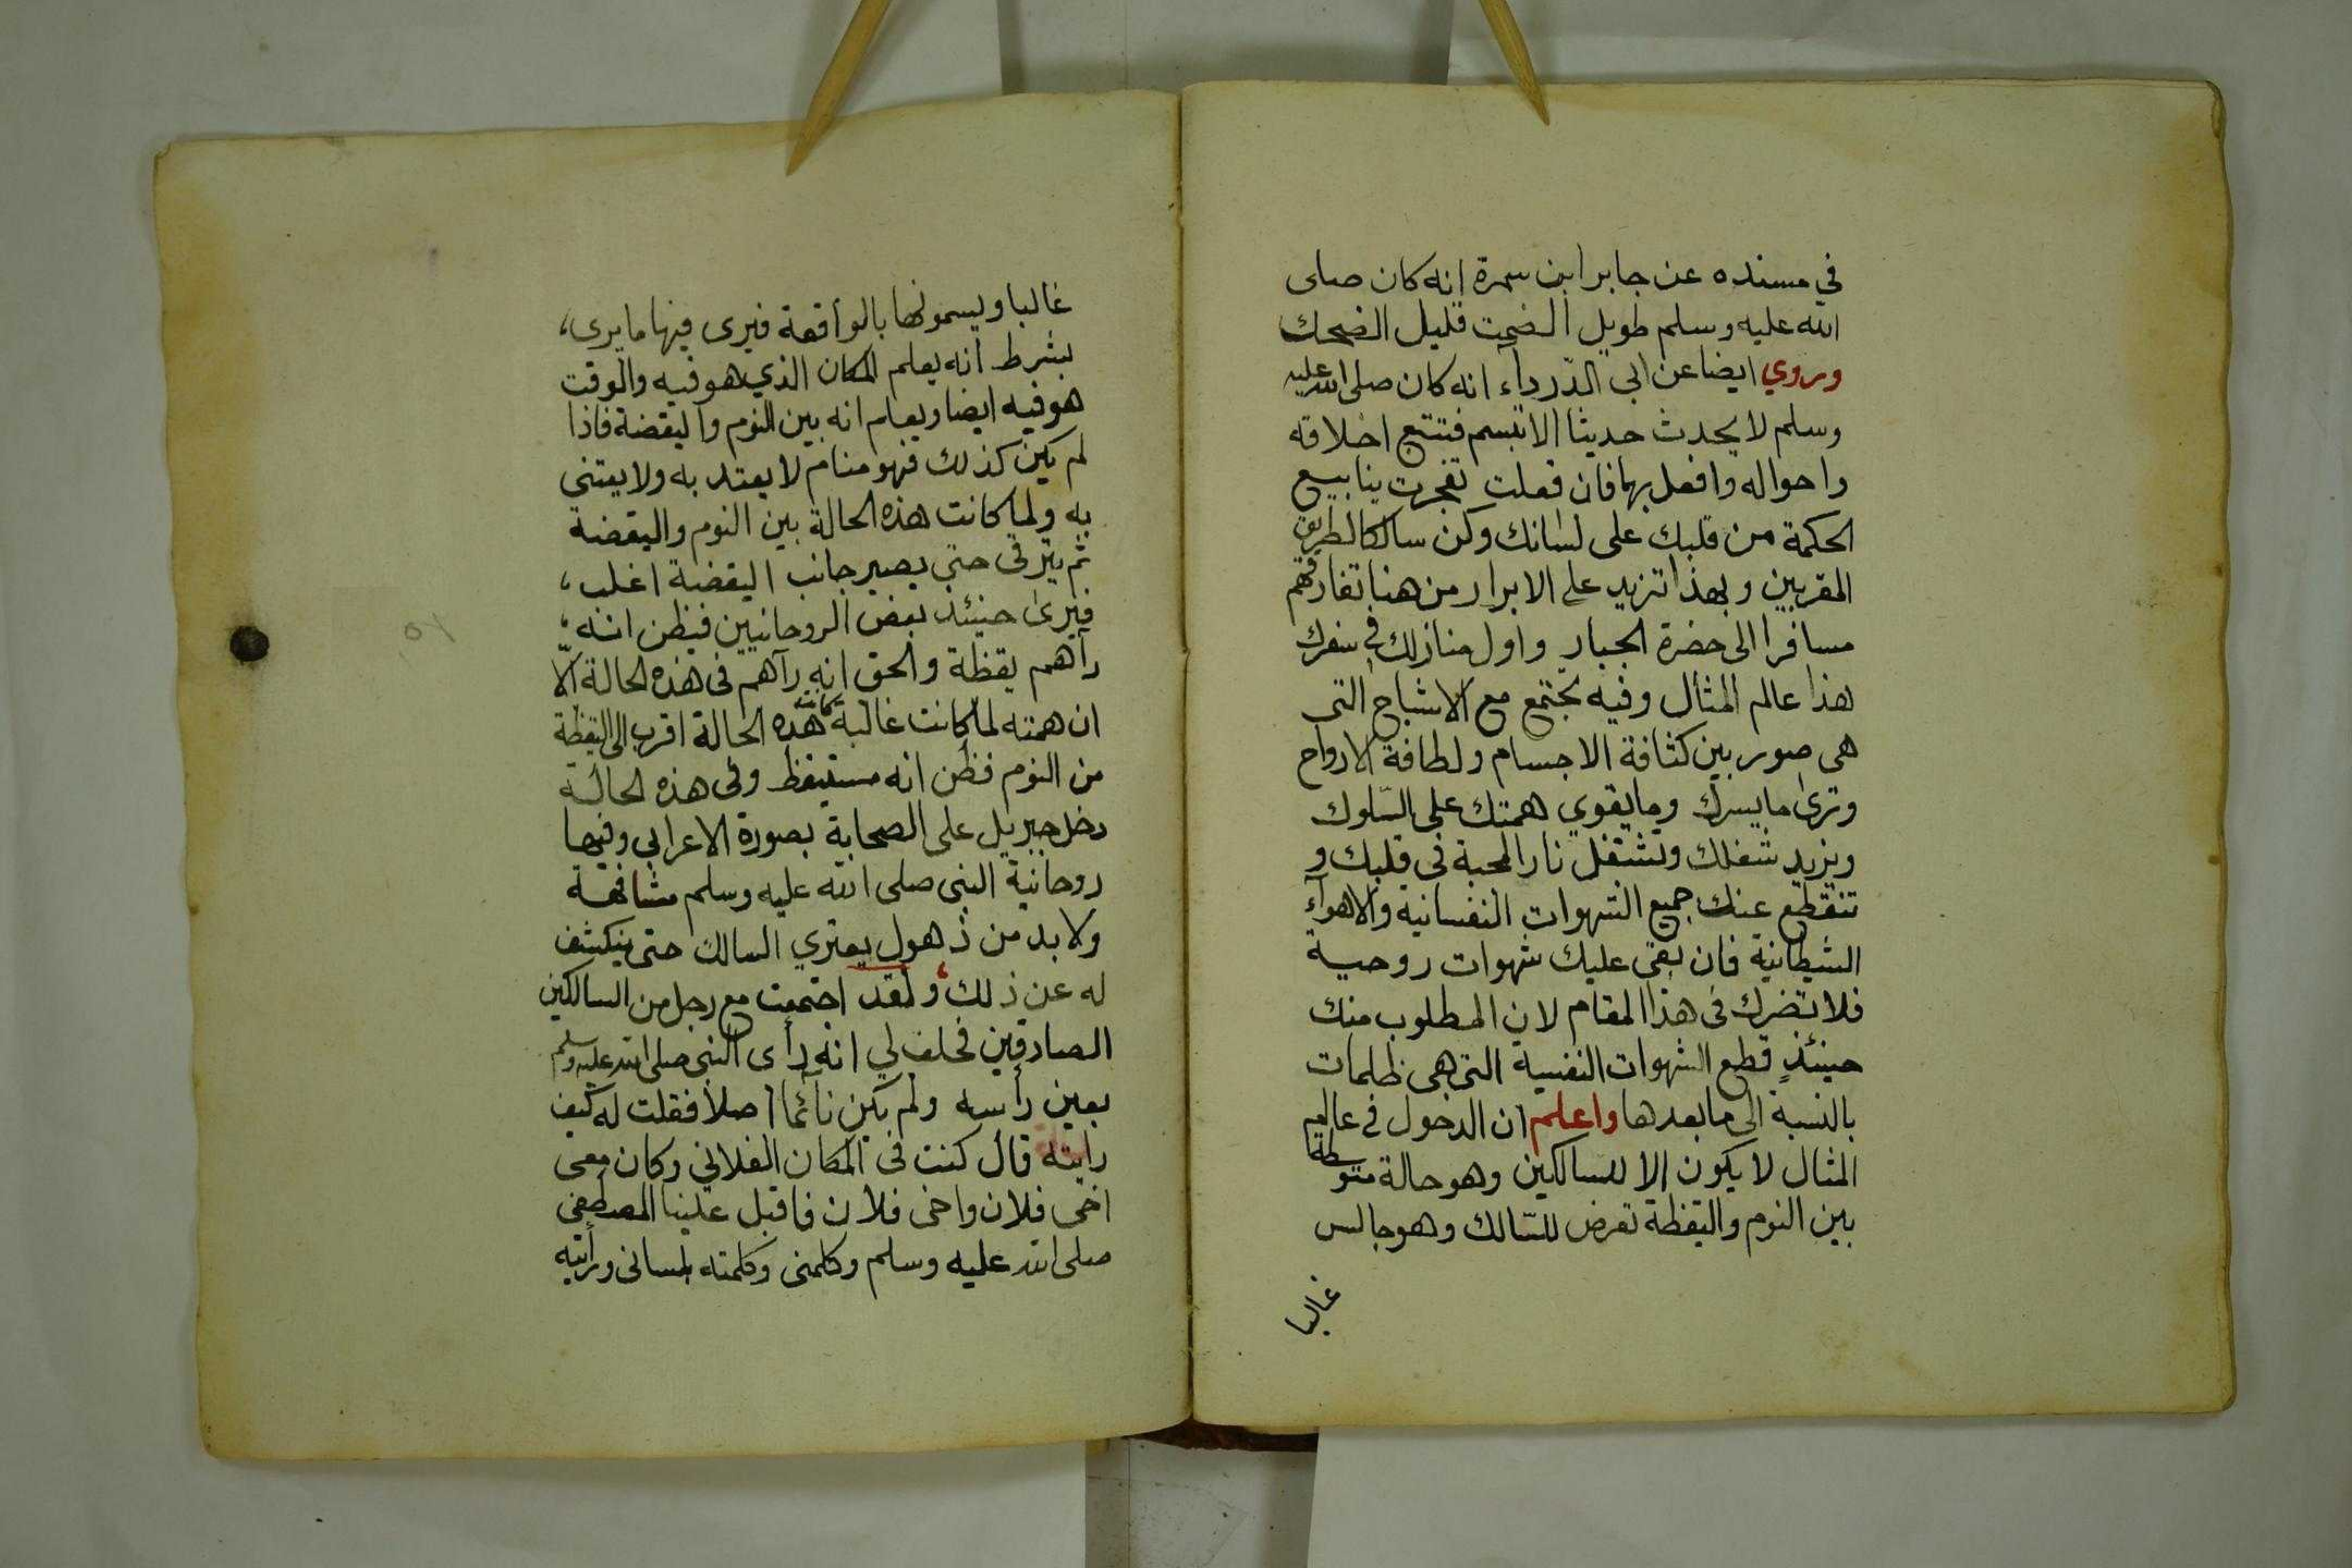 في مسنده عن جابر ابن سمرة انه كان صلى
الله عليه وسلم طويل الصمت قليل الضحك
وروي ايضا عن ابى الدّرداء انه كان صلى الله عليه
وسلم لا يحدث حديثا الا تبسم فتتبع اخلاقه
واحواله وافعل بهما فان فعلت تفجرت ينابيع
الحكمة من قلبك على لسانك وكن سالكا لطريق
المقربين وبهذا تزيد على الابرار من هنا تفارقهم
مسافرا الى حضرة الجبار واول منازلك في سفرك
هذا عالم المثال وفيه تجتمع مع الاشباح التى
هى صور بين كثافة الاجسام ولطافة الارواح
وترى ما يسرك وما يقوي همتك على السّلوك
ويزيد شغلك وتشتغل نار المحبة فى قلبك و
تنقطع عنك جميع الشهوات النفسانيه والاهوآء
الشيطانية فان بقى عليك شهوات روحية
فلا تضرك فى هذا المقام لان المطلوب منك
حينئذٍ قطع الشهوات النفسية التى هى ظلمات
بالنسبة الى ما بعدها واعلم ان الدخول فى عالم
المثال لا يكون الا للسالكين وهو حالة متوسطة
بين النوم واليقظة تعرض للسّالك وهو جالس
غالبا
غالبا ويسمونها بالواقعة فيرى فيها ما يرى،
بشرط انه يعلم المكان الذي هو فيه والوقت
هو فيه ايضا ويعلم انه بين النوم واليقضة فاذا
لم يكن كذلك فهو منام لا يعتد به ولا يعتنى
به ولما كانت هذه الحالة بين النوم واليقضة
ثم يترقى حتى يصير جانب اليقضة اغلب،
فيرى حينئذ بعض الروحانيين فيظن انه،
رآهم يقظة والحق انه رآهم فى هذه الحالة الّا
ان همته لما كانت غالبة كانت هذه الحالة اقرب الى اليقظة
من النوم فظن انه مستيقظ وفى هذه الحالة
دخل جبريل على الصحابة بصورة الاعرابي وفيها
روحانية النبى صلى الله عليه وسلم مشافهة
ولا بد من ذهول يعتري السالك حتى ينكشف
له عن ذلك، ولقد اجتمعت مع رجل من السالكين
الصادقين فحلف لي انه رأى النبى صلى الله عليه وسلم
بعين رأسه ولم يكن نائما اصلا فقلت له كيف
رايته قال كنت فى المكان الفلاني وكان معى
اخى فلان واخى فلان فاقبل علينا المصطفى
صلى الله عليه وسلم وكلمنى وكلمته بلسانى ورأيته